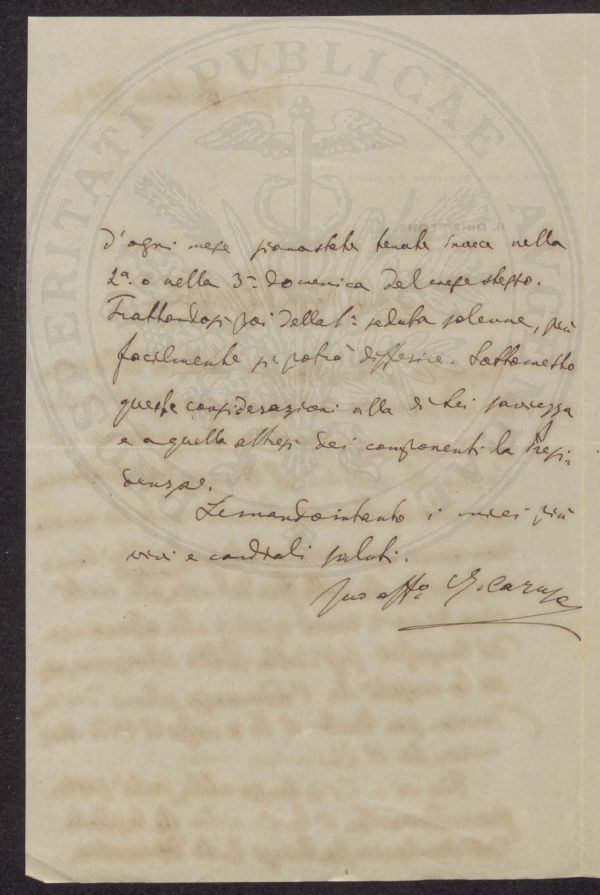 PROSPERITATI PVBLICAE AUGENDAE
d'ogni mese siano state tenute invece nella
2ª. o nella 3ª domenica del mese stesso.
Trattandosi poi della 1ª seduta solenne, più
facilmente si potrà differire. Sottometto
queste considerazioni alla di Lei saviezza
e a quella altresì dei componenti la Presi-
denza.
Le mando intanto i miei più
vivi e cordiali saluti.
Suo affº G. Caruso